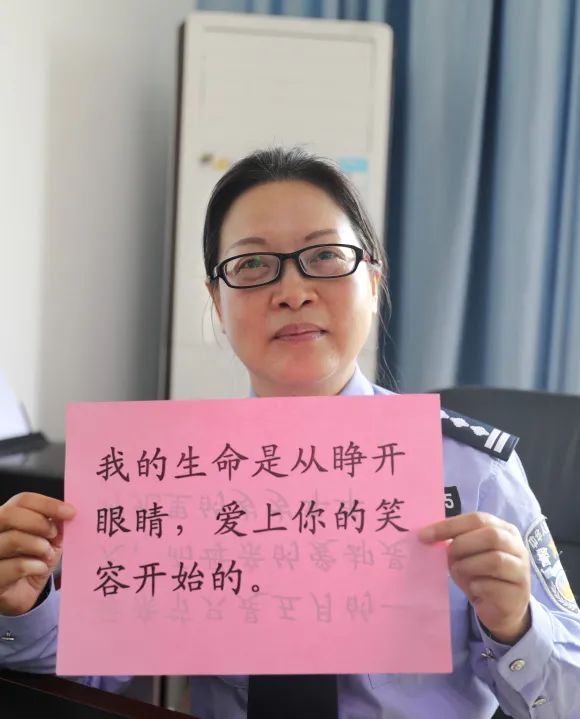 我的生命是从睁开
眼睛，爱上你的笑
容开始的。